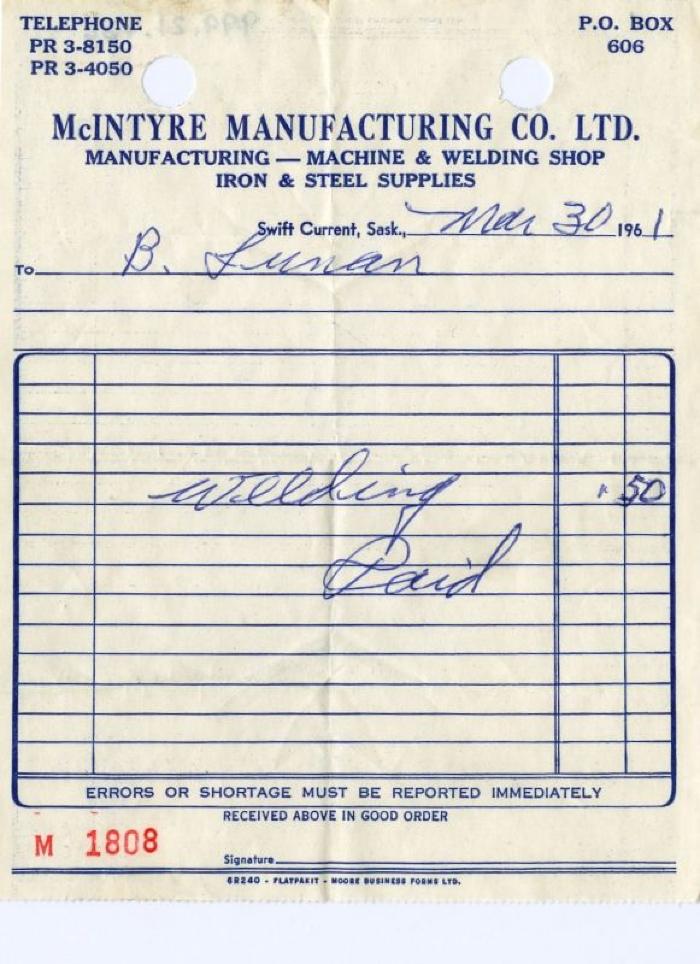 TELEPHONE
PR 3-8150
PR 3-4050
P.O. BOX
606
McINTYRE MANUFACTURING CO. LTD.
MANUFACTURING — MACHINE & WELDING SHOP
IRON & STEEL SUPPLIES
Swift Current, Sask., Mar 30 1961
To B. Lunan
Welding .50
Paid
ERRORS OR SHORTAGE MUST BE REPORTED IMMEDIATELY
RECEIVED ABOVE IN GOOD ORDER
M 1808
Signature
6R240 - FLATPAKIT - MOORE BUSINESS FORMS LTD.